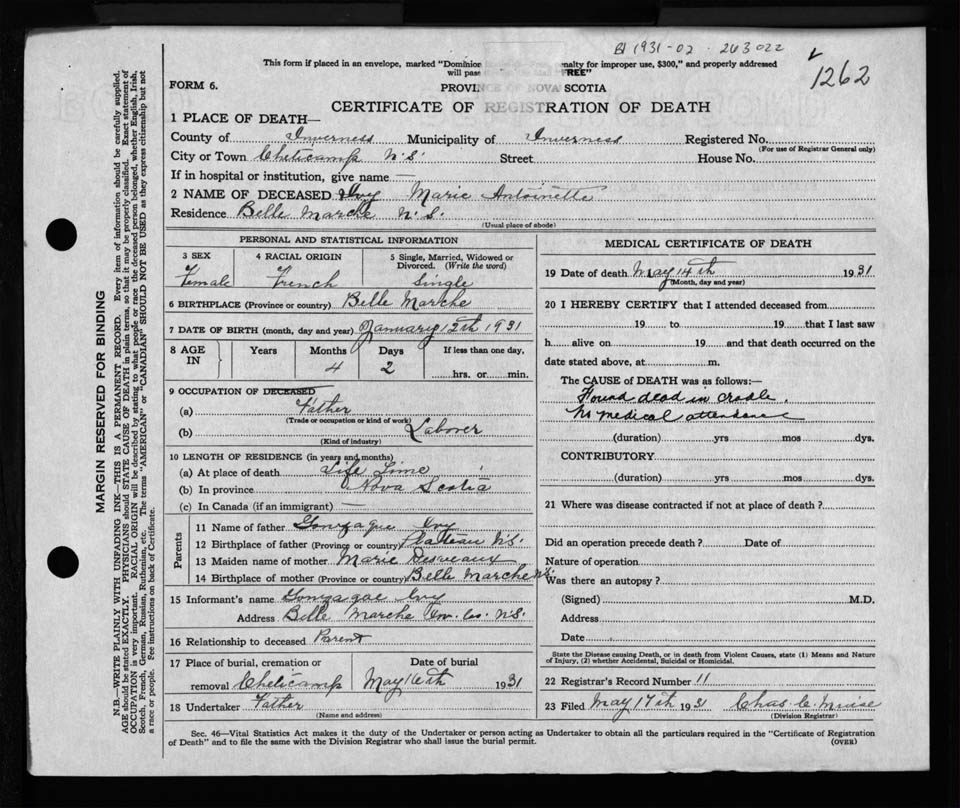 B1 1931-02 - 263022
1262
This form if placed in an envelope, marked "Dominion enalty for improper use, $300," and properly addressed
will pass FREE"
FORM 6.
PROVINCE OF NOVA SCOTIA
CERTIFICATE OF REGISTRATION OF DEATH
1 PLACE OF DEATH—
County of Inverness Municipality of Inverness Registered No.
(For use of Registrar General only)
City or Town Cheticamp N.S. Street House No.
If in hospital or institution, give name —
2 NAME OF DECEASED Marie Antoinette
Residence Belle Marche N.S.
(Usual place of abode)
PERSONAL AND STATISTICAL INFORMATION
3 SEX 4 RACIAL ORIGIN 5 Single, Married, Widowed or
Divorced. (Write the word)
Female French Single
6 BIRTHPLACE (Province or country) Belle Marche
7 DATE OF BIRTH (month, day and year) January 12th 1931
8 AGE IN Years Months Days If less than one day,
4 2 hrs. or min.
9 OCCUPATION OF DECEASED
(a) Father
(Trade or occupation or kind of work)
(b) Laborer
(Kind of industry)
10 LENGTH OF RESIDENCE (in years and months)
(a) At place of death Life Time
(b) In province Nova Scotia
(c) In Canada (if an immigrant) —
Parents
11 Name of father Gonzague
12 Birthplace of father (Province or country) Plateau N.S.
13 Maiden name of mother Marie Desveaux
14 Birthplace of mother (Province or country) Belle Marche N.S.
15 Informant's name Gonzague
Address Belle Marche Inv. Co. N.S.
16 Relationship to deceased Parent
17 Place of burial, cremation or Date of burial
removal Cheticamp May 16th 1931
18 Undertaker Father
(Name and address)
MEDICAL CERTIFICATE OF DEATH
19 Date of death May 14th 1931
(Month, day and year)
20 I HEREBY CERTIFY that I attended deceased from
19 to 19 that I last saw
h alive on 19 and that death occurred on the
date stated above, at m.
The CAUSE of DEATH was as follows:—
Found dead in cradle.
No medical attendance
(duration) yrs mos dys.
CONTRIBUTORY
(duration) yrs mos dys.
21 Where was disease contracted if not at place of death ?
Did an operation precede death ? Date of
Nature of operation
Was there an autopsy ?
(Signed) M.D.
Address
Date
State the Disease causing Death, or in death from Violent Causes, state (1) Means and Nature
of Injury, (2) whether Accidental, Suicidal or Homicidal.
22 Registrar's Record Number 11
23 Filed May 17th 1931 Chas. C.
(Division Registrar)
Sec. 46—Vital Statistics Act makes it the duty of the Undertaker or person acting as Undertaker to obtain all the particulars required in the "Certificate of Registration
of Death" and to file the same with the Division Registrar who shall issue the burial permit.
(OVER)
MARGIN RESERVED FOR BINDING
N.B.—WRITE PLAINLY WITH UNFADING INK—THIS IS A PERMANENT RECORD. Every item of information should be carefully supplied.
AGE should be stated EXACTLY. PHYSICIANS should STATE CAUSE OF DEATH in plain terms, so that it may be properly classified. Exact statement of
OCCUPATION is very important. RACIAL ORIGIN will be described by stating to what people or race the deceased person belonged, whether English, Irish,
Scotch, French, German, Russian, Ruthenian, etc. The terms "AMERICAN" or "CANADIAN" SHOULD NOT BE USED as they express citizenship but not
a race or people. See instructions on back of Certificate.